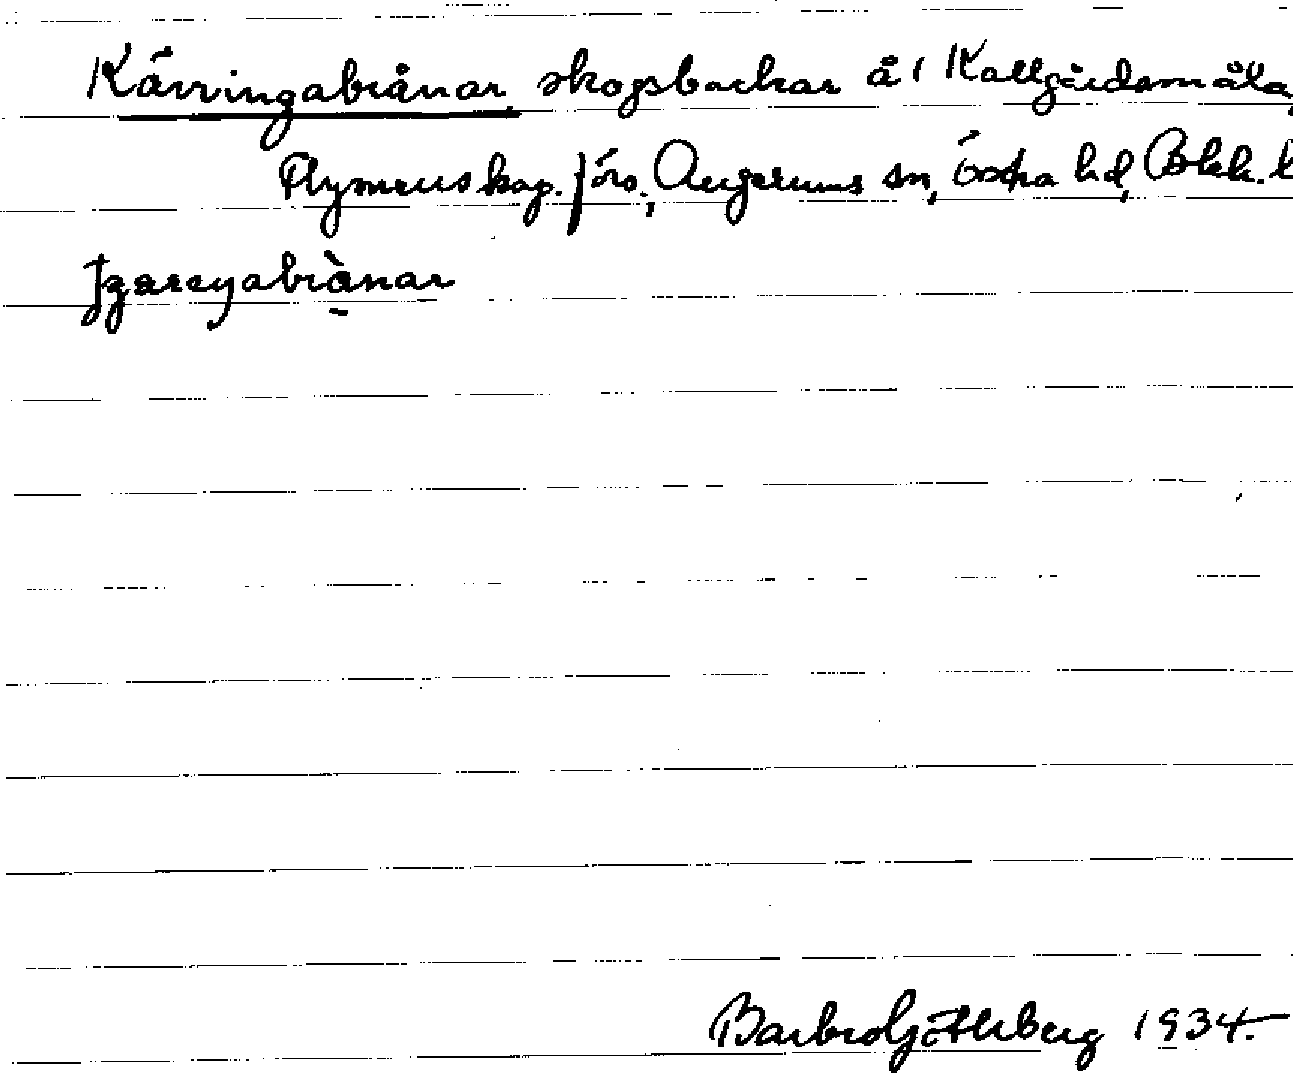 Kärringabrånar, skogsbackar å 1 Kallgårdsmåla,
Flymens kap. förs., Augerums sn, Östra hd, Blek. l
Barbro Götherberg 1934.